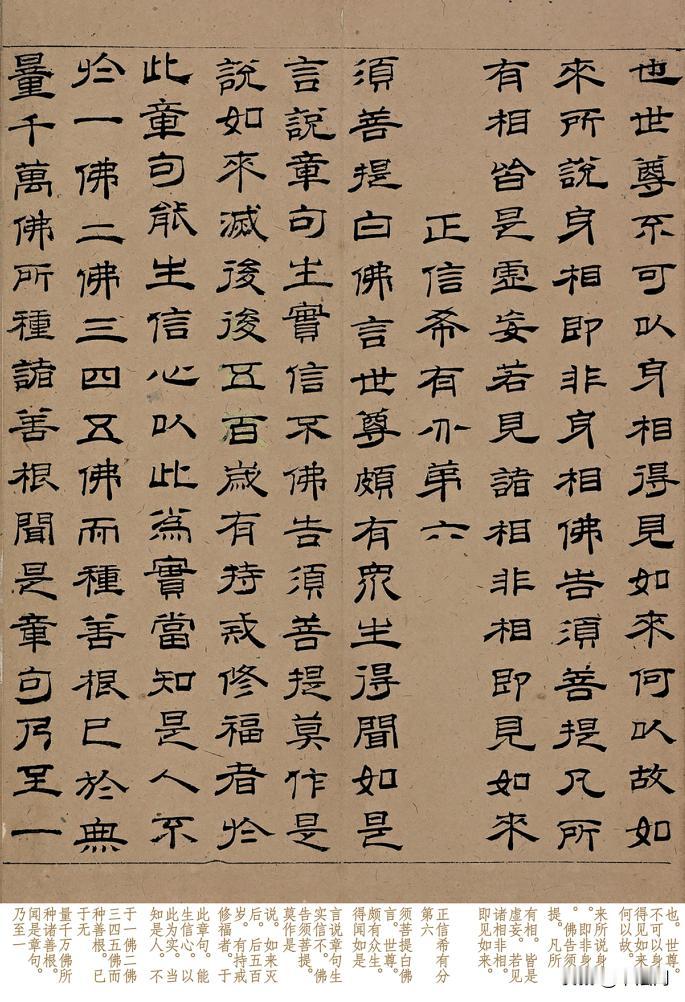 也世尊不可以身相得見如來何以故如
來所說身相即非身相佛告須菩提凡所
有相皆是虛妄若見諸相非相即見如來
正信希有分第六
須菩提白佛言世尊頗有眾生得聞如是
言說章句生實信不佛告須菩提莫作是
說如來滅後後五百歲有持戒修福者於
此章句能生信心以此為實當知是人不
於一佛二佛三四五佛而種善根已於無
量千萬佛所種諸善根聞是章句乃至一
也。世尊。
不可以身
得见如来
何以故。
来所说身
。即非身
。佛告须
提。凡所
有相。皆是
虚妄。若见
诸相非相。
即见如来。
正信希有分
第六
须菩提白佛
言。世尊。
颇有众生。
得闻如是
言说章句生
实信不。佛
告须菩提。
莫作是
说。如来灭
后。后五百
岁。有持戒
修福者。于
此章句。能
生信心。以
此为实。当
知是人。不
于一佛二佛
三四五佛而
种善根。已
于无
量千万佛所
种诸善根。
闻是章句。
乃至一